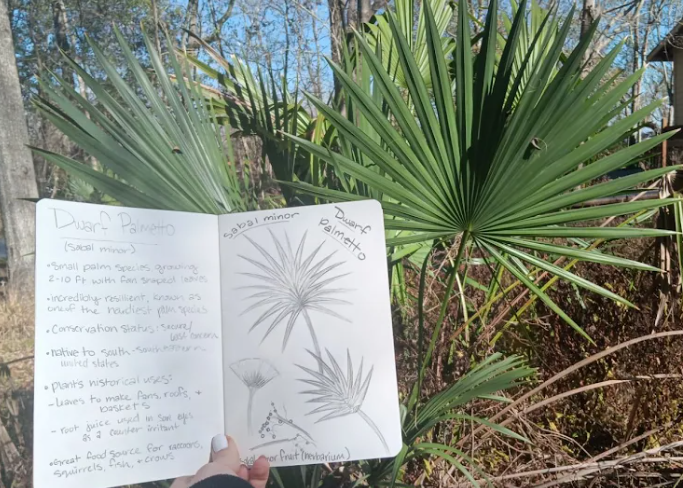 Dwarf Palmetto
(sabal minor)
• small palm species growing
2-10 ft with fan shaped leaves
• incredibly resilient, known as
one of the hardiest palm species
• Conservation status: secure/
least concern
• native to south-southeastern
united states
• plants historical uses:
- leaves to make fans, roofs, +
baskets
- root juice used in sore eyes
as a counter irritant
• Great food source for raccoons,
squirrels, fish, + crows
sabal minor
Dwarf
Palmetto
minor fruit (herbarium)